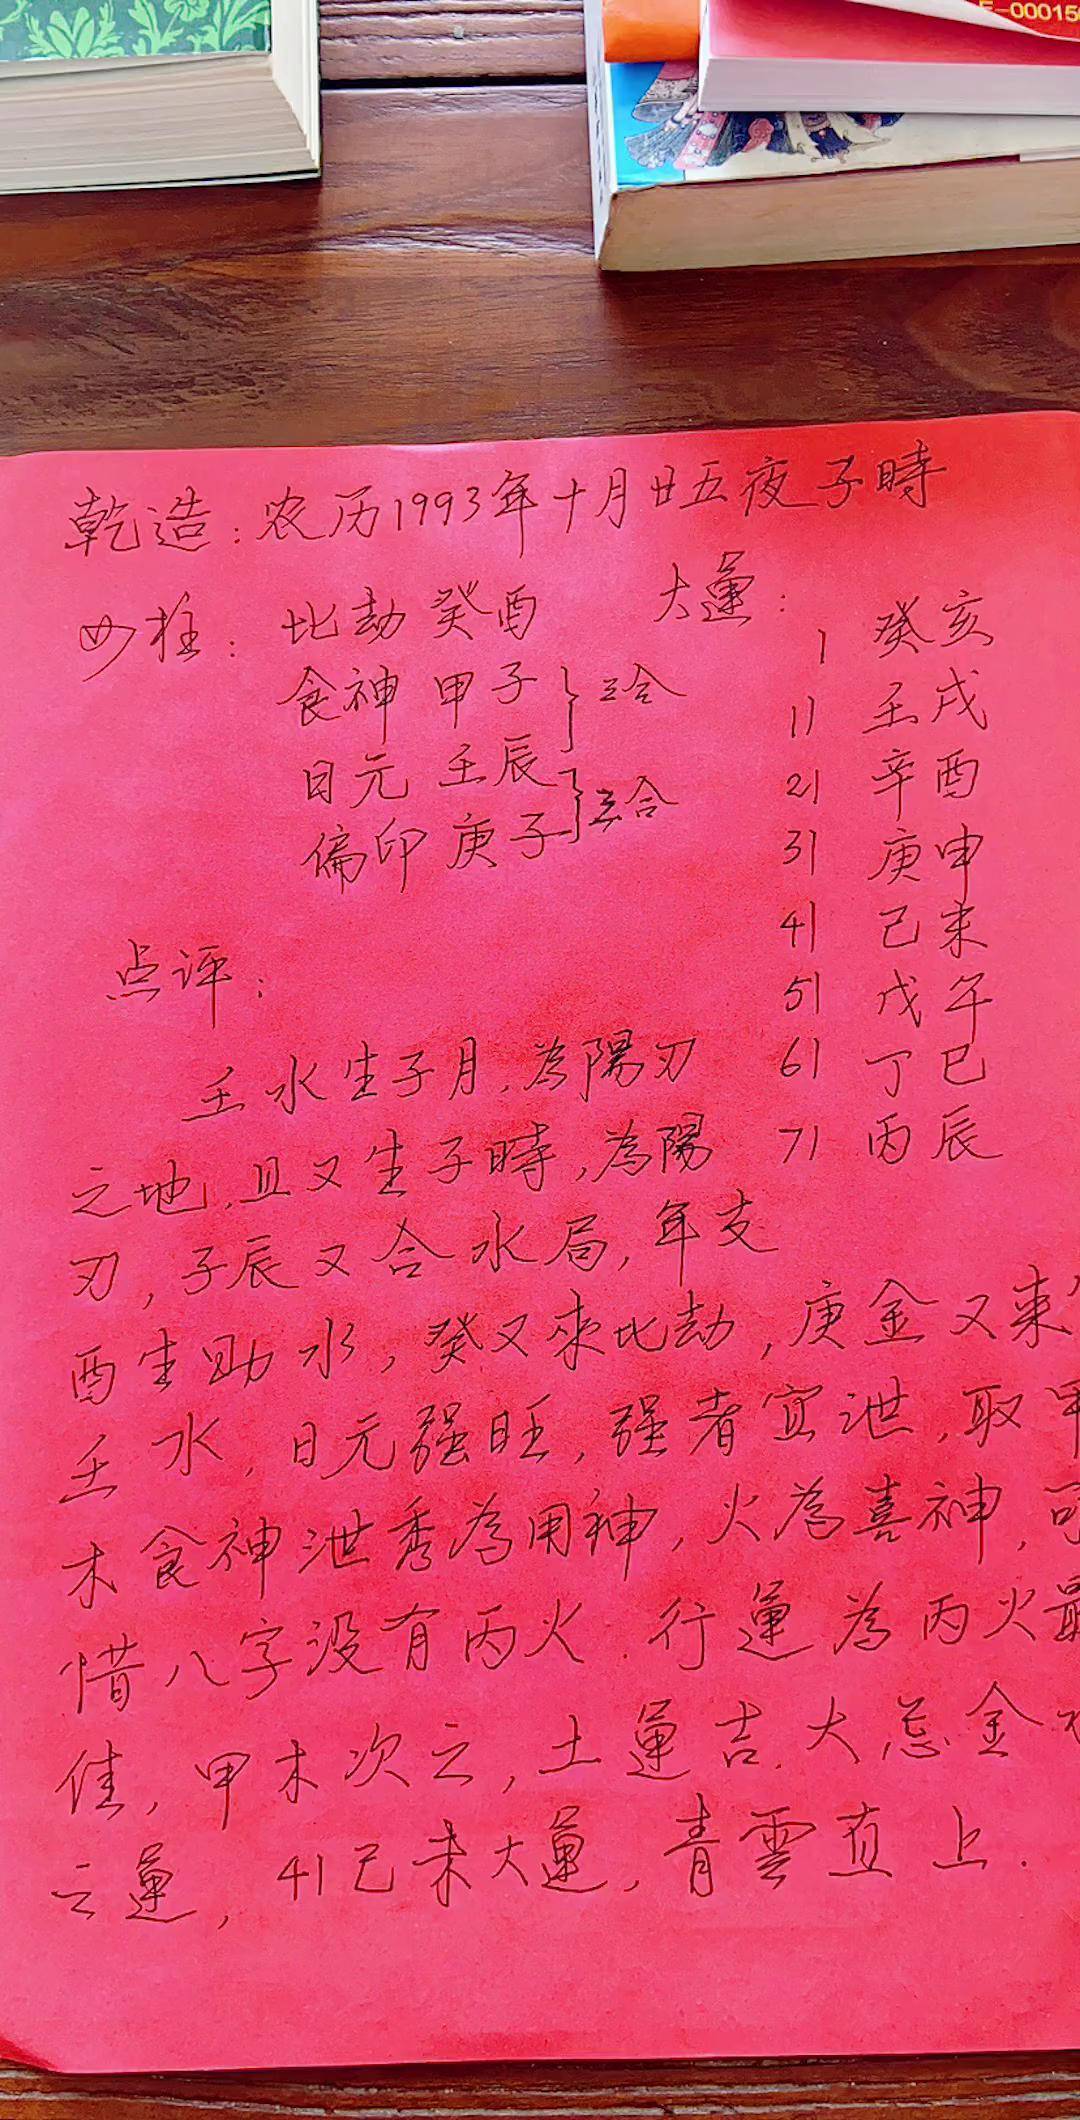 E-00015
乾造：农历1993年十月廿五夜子時
四柱：比劫 癸酉
食神 甲子
日元 壬辰
偏印 庚子
三合
三合
大運：
1 癸亥
11 壬戌
21 辛酉
31 庚申
41 己未
51 戊午
61 丁巳
71 丙辰
点评：
壬水生子月，為陽刃
之地，且又生子時，為陽
刃，子辰又合水局，年支
酉生助水，癸又來比劫，庚金又来
壬水，日元强旺，强者宜泄，取甲
木食神泄秀為用神，火為喜神，可
惜八字没有丙火．行運為丙火最
佳，甲木次之，土運吉．大忌金水
之運，41己未大運，青雲直上．